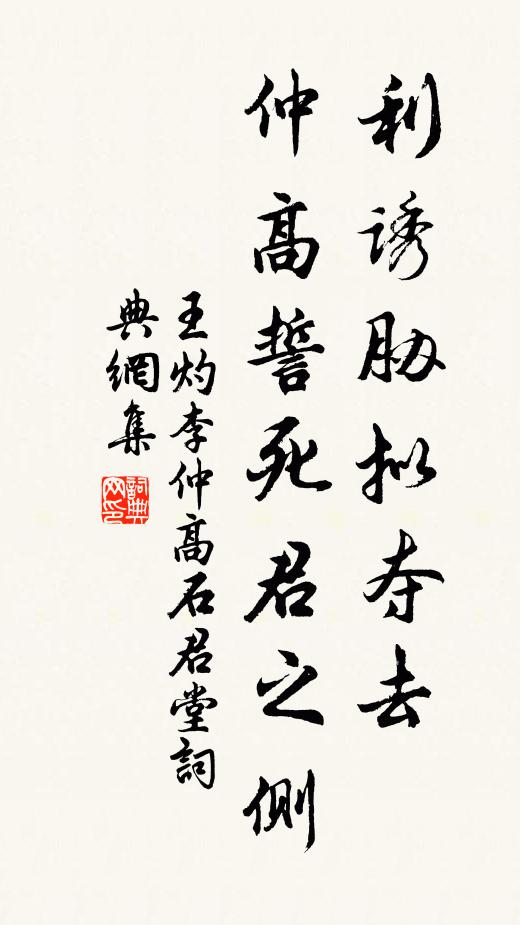 利诱胁拟夺去
仲高誓死君之侧
王灼李仲高石君堂詞
典網集
詞典
网印